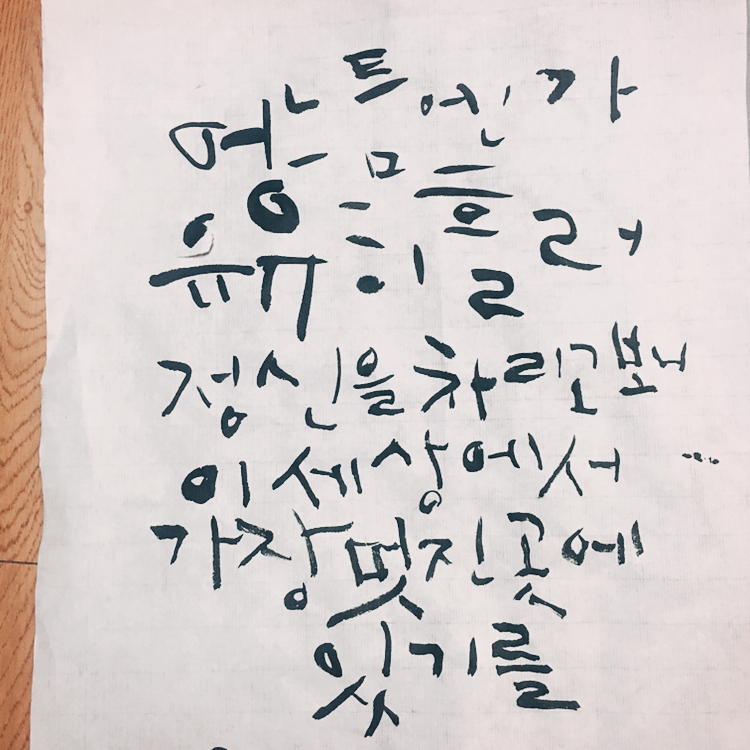 어느 틈엔가
유유히 흘러
정신을 차리고 보니
이 세상에서
가장 멋진 곳에
있기를